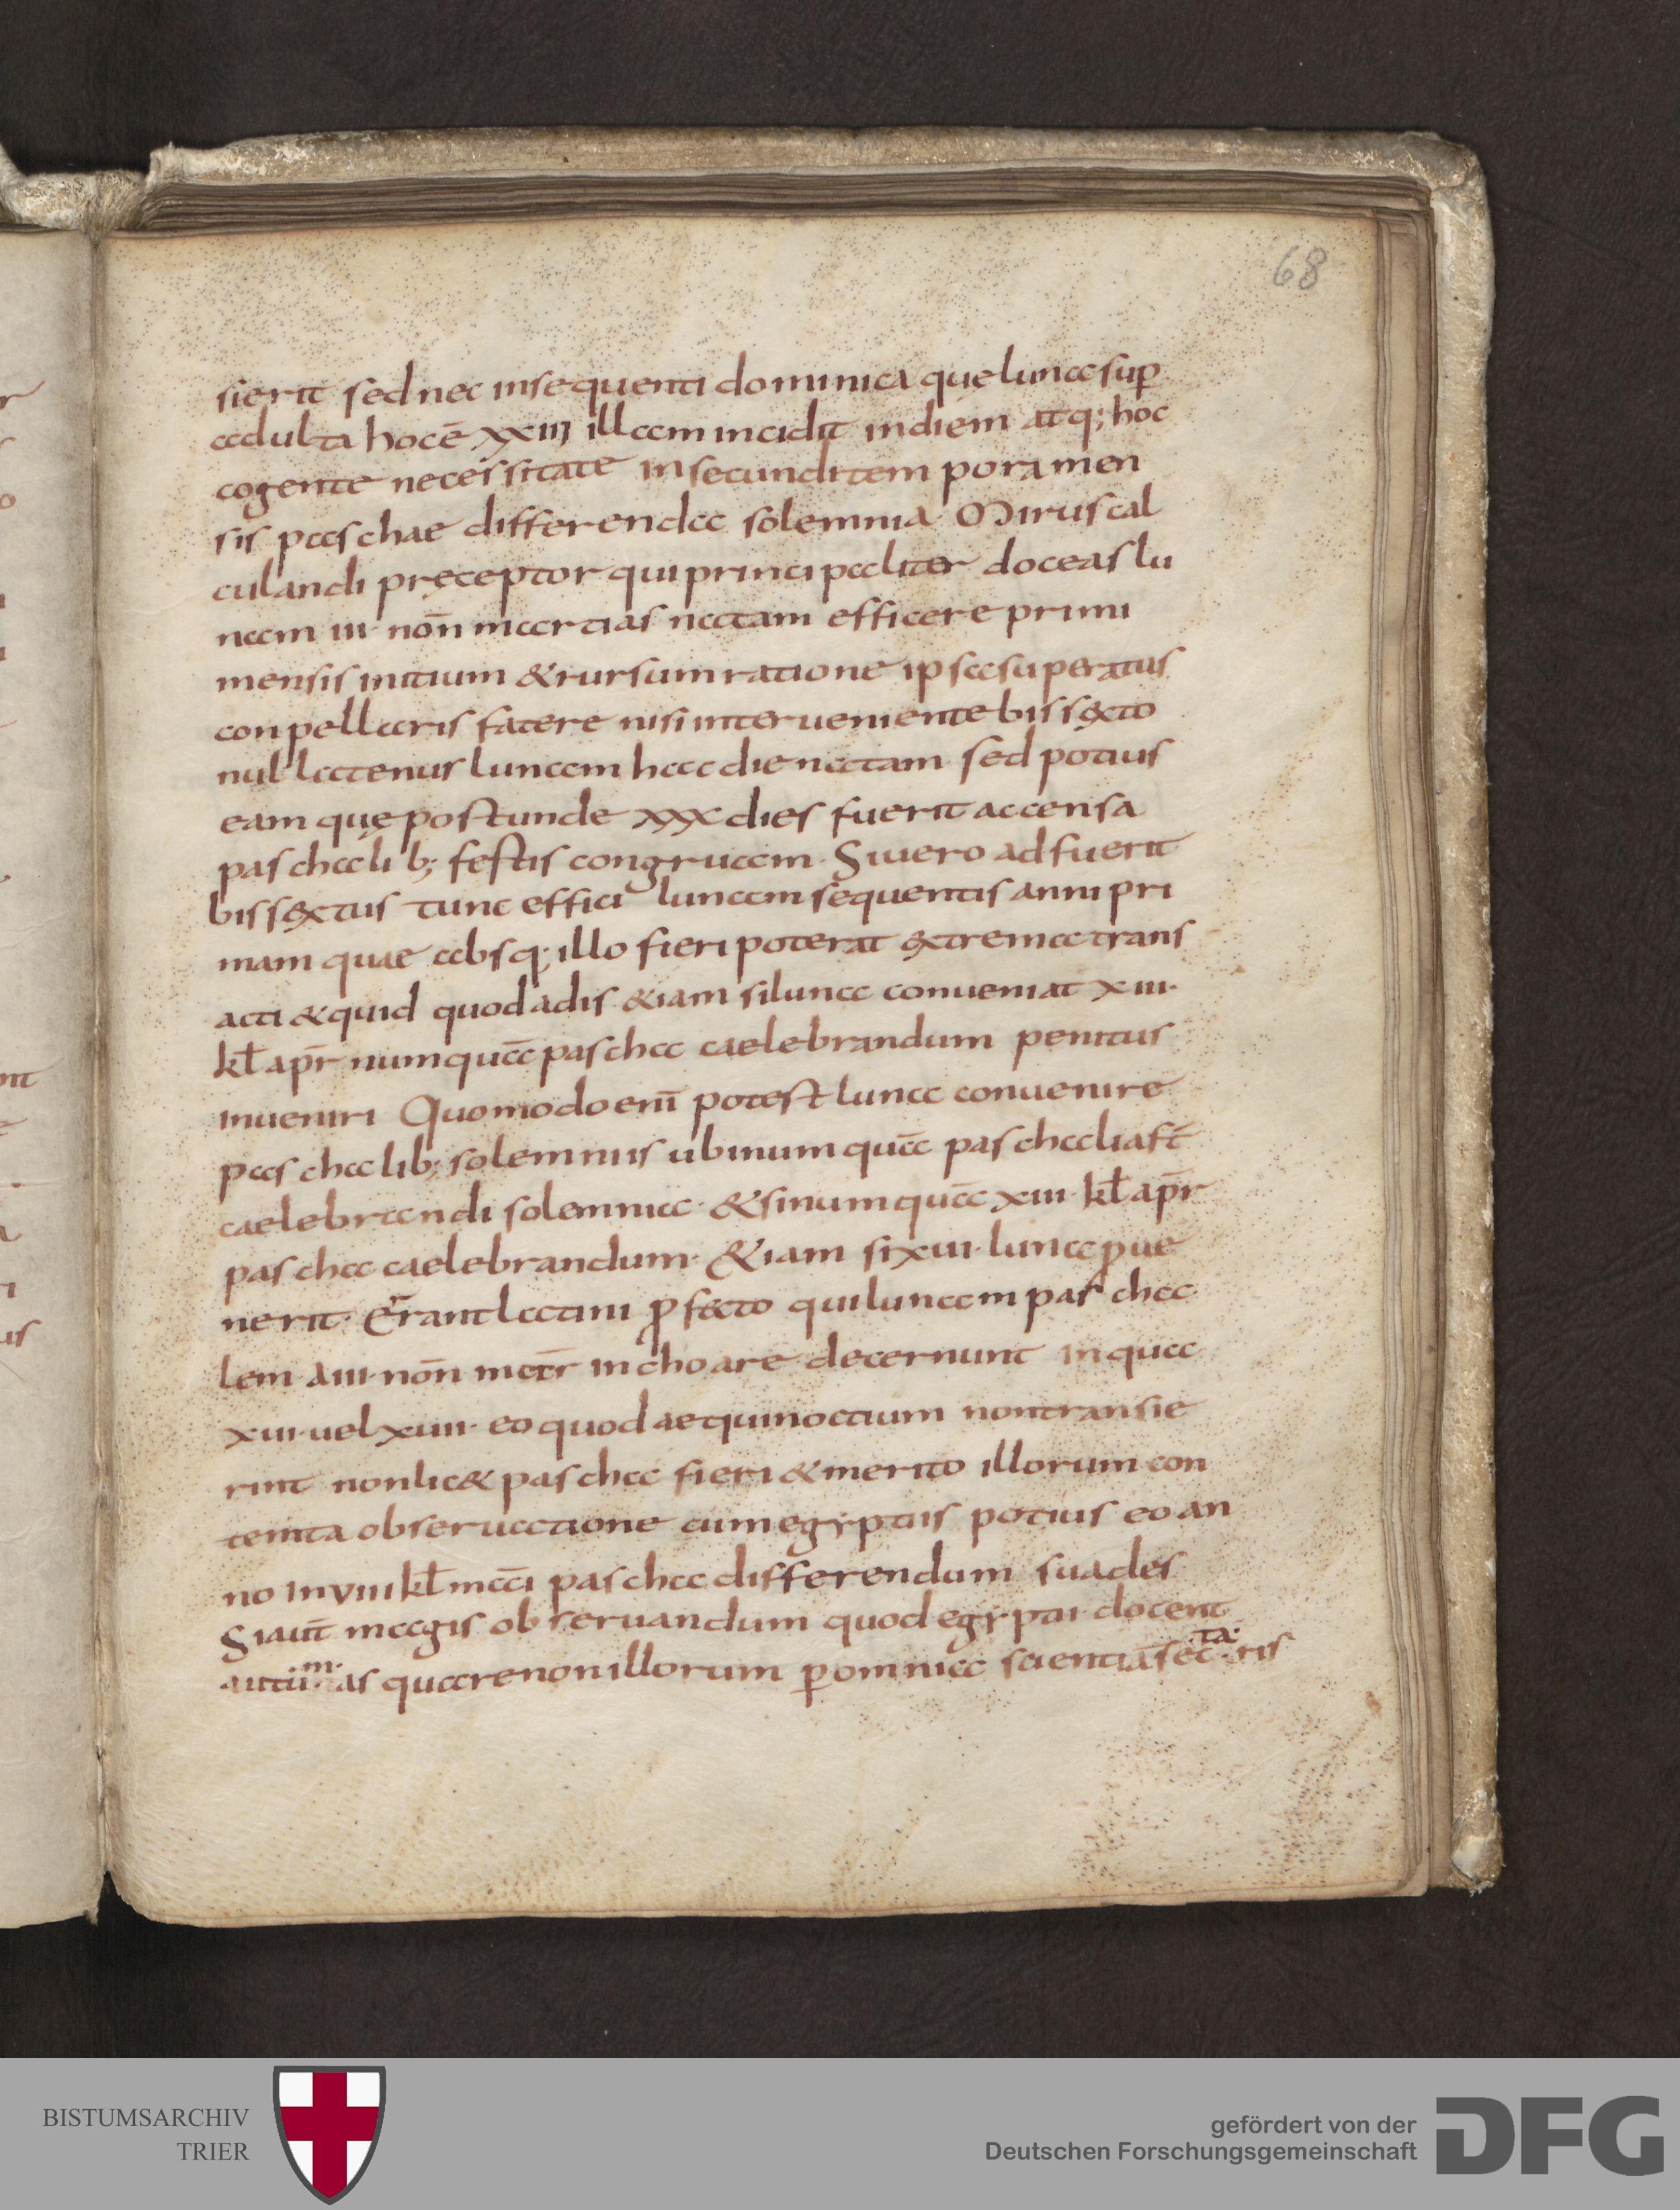 68
sierit sed nec insequenti dominica quę luna sup
adulta hoc ē xxiij illam incidit in diem atq; hoc
cogente necessitate in secundi tempora men
sis paschae differenda solemnia Mirus cal
culandi pręceptor qui principaliter doceas lu
nam iii· nōn martias natam efficere primi
mensis initium & rursum ratione ipsa superatus
conpellaris fatere nisi interueniente bissęxto
nullatenus lunam hac die natam sed potius
eam quę post unde xxx dies fuerit accensa
paschalib; festis congruam· Si uero adfuerit
bissęxtus tunc effici lunam sequentis anni pri
mam quae absq; illo fieri poterat ęxtrema trans
acti & quid quod adis &iam si luna conueniat xiii·
kł apr̄ numquā pascha caelebrandum penitus
inueniri Quomodo enī potest luna conuenire
paschalib; solemniis ubi numquā paschalia st̄
caelebrandi solemnia· & si numquā xiii· kł apr̄
pascha caelebrandum· &iam si xiii· luna ꝓue
nerit· Errant latini ꝓfecto qui lunam pascha
lem a iii· nōn mar̄ inchoare decernunt in qua
xiii· uel xiiii· eo quod aequinoctium non transie
rint non lic& pascha fieri & merito illorum con
temta obseruatione cum egyptiis potius eo an
no in viii kł māi pascha differendum suades
Si aut̄ magis obseruandum quod egyptii docent
autumas quare non illorum ꝑ omnia scientiā sectatis
BISTUMSARCHIV
TRIER
gefördert von der
Deutschen Forschungsgemeinschaft
DFG